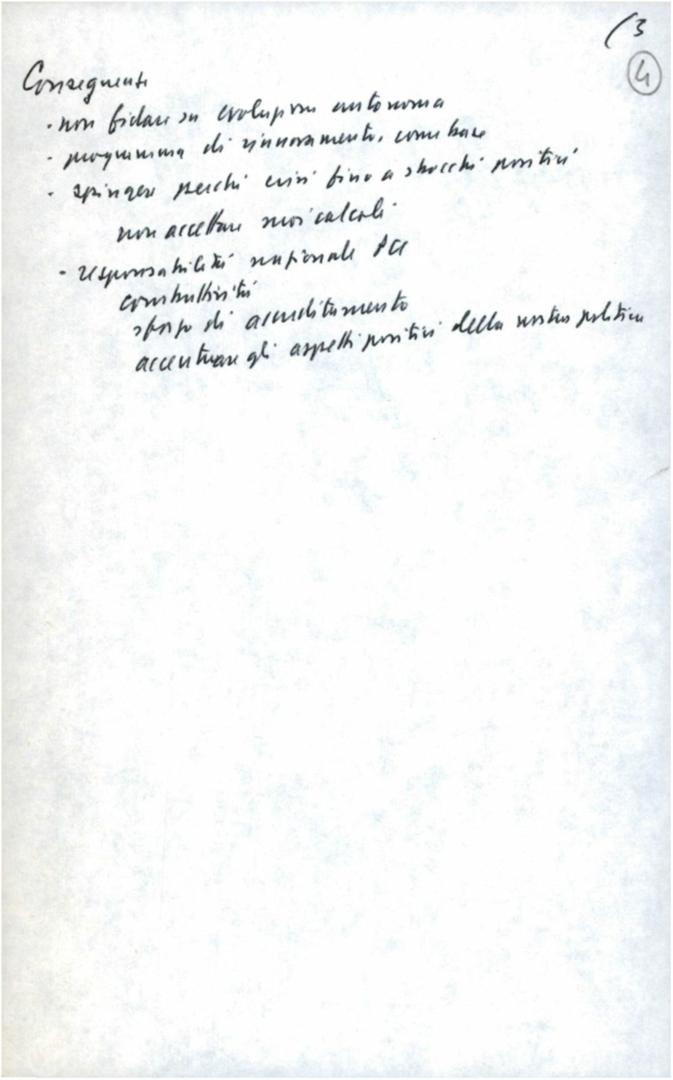 (3
4
Conseguenze
- non fidare su evoluzione autonoma
- programma di rinnovamento, come base
- spingere perché crisi fino a sbocchi positivi
non accettare suoi calcoli
- responsabilità nazionale PCI
combattività
sforzo di accreditamento
accentuare gli aspetti positivi della nostra politica